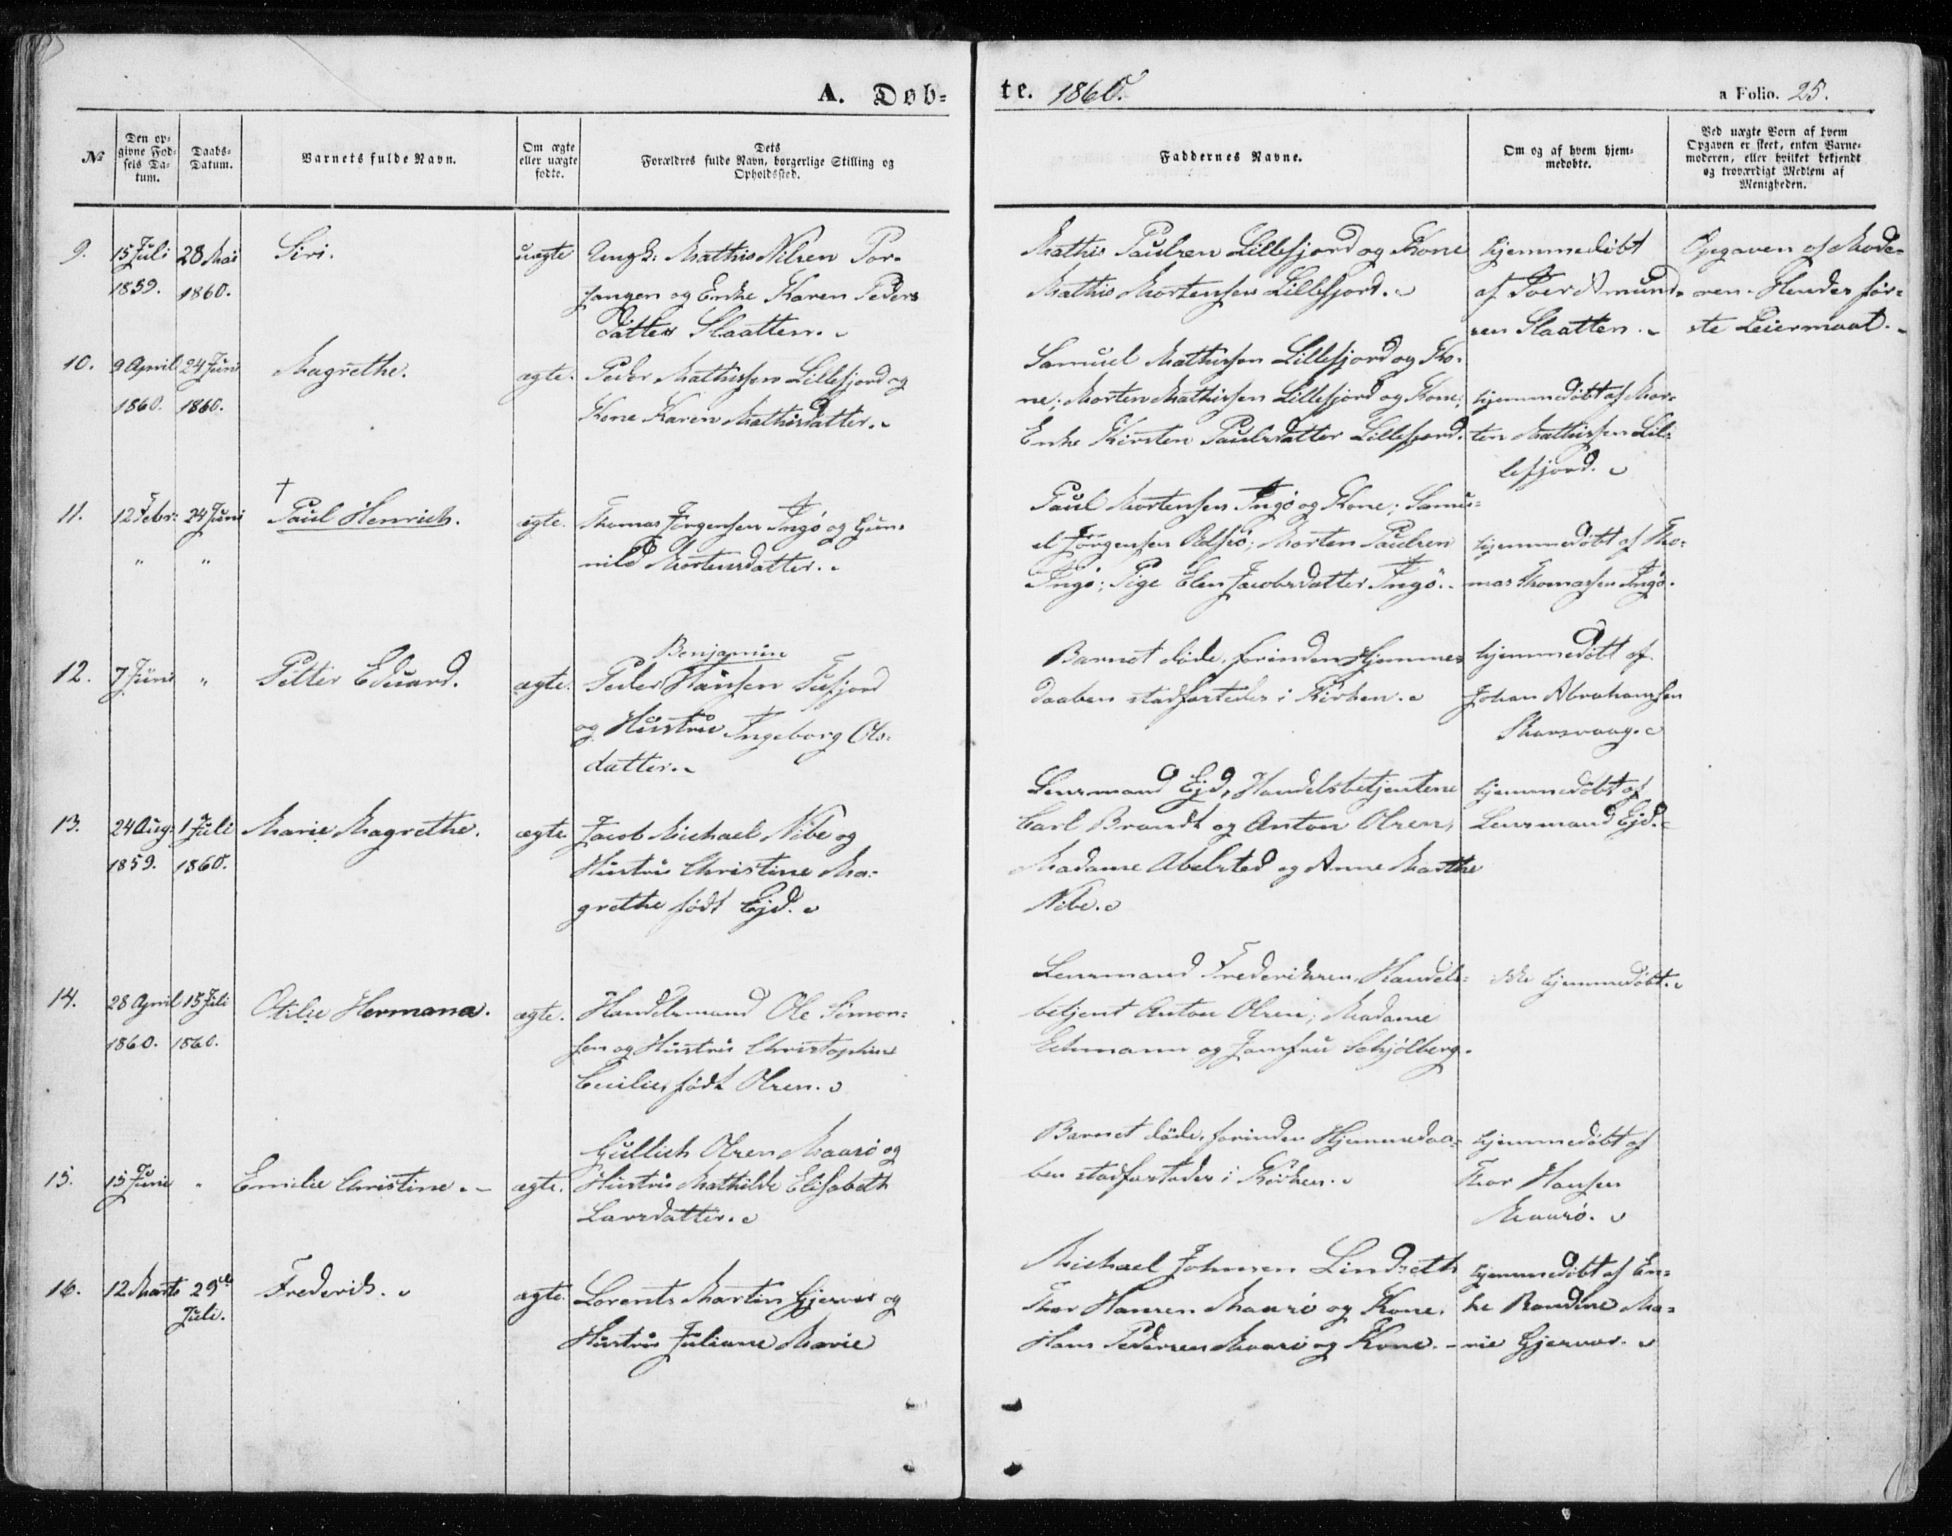 A. Døb-
te. 1860.
a Folio. 25.
№
Den op-
givne Fød-
sels Da-
tum.
Daabs-
Datum.
Barnets fulde Navn.
Om ægte
eller uægte
fødte.
Dets
Forældres fulde Navn, borgerlige Stilling og
Opholdssted.
Faddernes Navne.
Om og af hvem hjem-
medøbte.
Ved uægte Børn af hvem
Opgaven er skeet, enten Barne-
moderen, eller hvilket bekjendt
og troværdigt Medlem af
Menigheden.
9.
15 Juli
1859.
28 Mai
1860.
Siri.
uægte
Ungk: Mathis Nilsen Por-
sangen og Enke Karen Peders
datter Slaatten.
Mathis Paulsen Lillefjord og Kone
Mathis Mortensen Lillefjord.
hjemmedøbt
af Iver Amund-
sen Slaatten.
Opgaven af Mode-
ren. Hendes før-
ste Leiermaal.
10.
9 April
1860.
24 Juni
1860.
Magrethe.
ægte.
Peder Mathissen Lillefjord og
Kone Karen Mathisdatter.
Samuel Mathissen Lillefjord og Ko-
ne; Morten Mathissen Lillefjord og Kone;
Enke Kirsten Paulsdatter Lillefjord.
hjemmedøbt af Mor-
ten Mathissen Lil-
lefjord.
11.
12 Febr:
"
24 Juni
"
†
Paul Henrich.
ægte.
Thomas Jørgensen Ingø og Gun-
nild Mortensdatter.
Paul Mortensen Ingø og Kone; Samu-
el Jørgensen Rolfsø; Morten Paulsen
Ingø; Pige Elen Jacobsdatter Ingø.
hjemmedøbt af Tho-
mas Thomassen Ingø.
12.
7 Juni
"
Petter Eduard.
ægte.
Benjamin
Peder Hansen Tufjord
og Hustru Ingeborg Ols-
datter.
Barnet døde, forinden Hjemme
daaben stadfæstedes i Kirken.
hjemmedøbt af
Johan Abrahamsen
Skarsvaag.
13.
24 Aug:
1859.
1 Juli
1860.
Marie Magrethe.
ægte.
Jacob Michael Nibe og
Hustru Christine Ma-
grethe født Ejd.
Lensmand Ejd, Handelsbetjentene
Carl Brandt og Anton Olsen,
Madame Abelsted og Anne Marthe
Nibe.
hjemmedøbt af
Lensmand Ejd.
14.
28 April
1860.
15 Juli
1860.
Otilie Hermana.
ægte.
Handelsmand Ole Simon-
sen og Hustru Christophine
Cecilie, født Olsen.
Lensmand Frederiksen, Handels-
betjent Anton Olsen; Madame
Echmann og Jomfru Schjølberg.
ikke hjemmedøbt.
15.
15 Juni
"
Emilie Christine.
ægte.
Gullich Olsen Maasø og
Hustru Mathilde Elisabeth
Larsdatter.
Barnet døde, forinden Hjemmedaa-
ben stadfæstedes i Kirken.
hjemmedøbt af
Thor Hansen
Maasø.
16.
12 Marts
29de
Juli.
Frederik.
ægte.
Lorents Martin Gjervær og
Hustru Juliane Marie
Michael Johnsen Lindseth
Thor Hansen Maasø og Kone,
Hans Pedersen Maasø og Kone.
hjemmedøbt af En-
ke Randine Ma-
rie Gjervær.